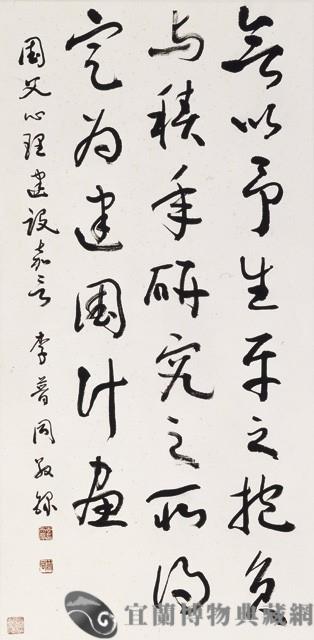 以予生平之抱負
與積年研究之所得
定為建國計畫
國父心理建設嘉言 李普同敬錄
宜蘭博物典藏網